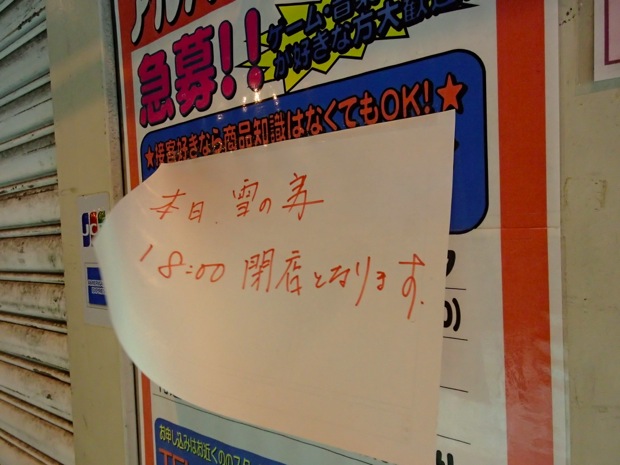 急募!!
ゲーム・音楽
が好きな方大歓迎
★接客好きなら商品知識はなくてもOK!★
本日、雪の為
18:00 閉店となります。
JCB
AMERICAN
EXPRESS
お申し込みはお近くのスタ
TEL